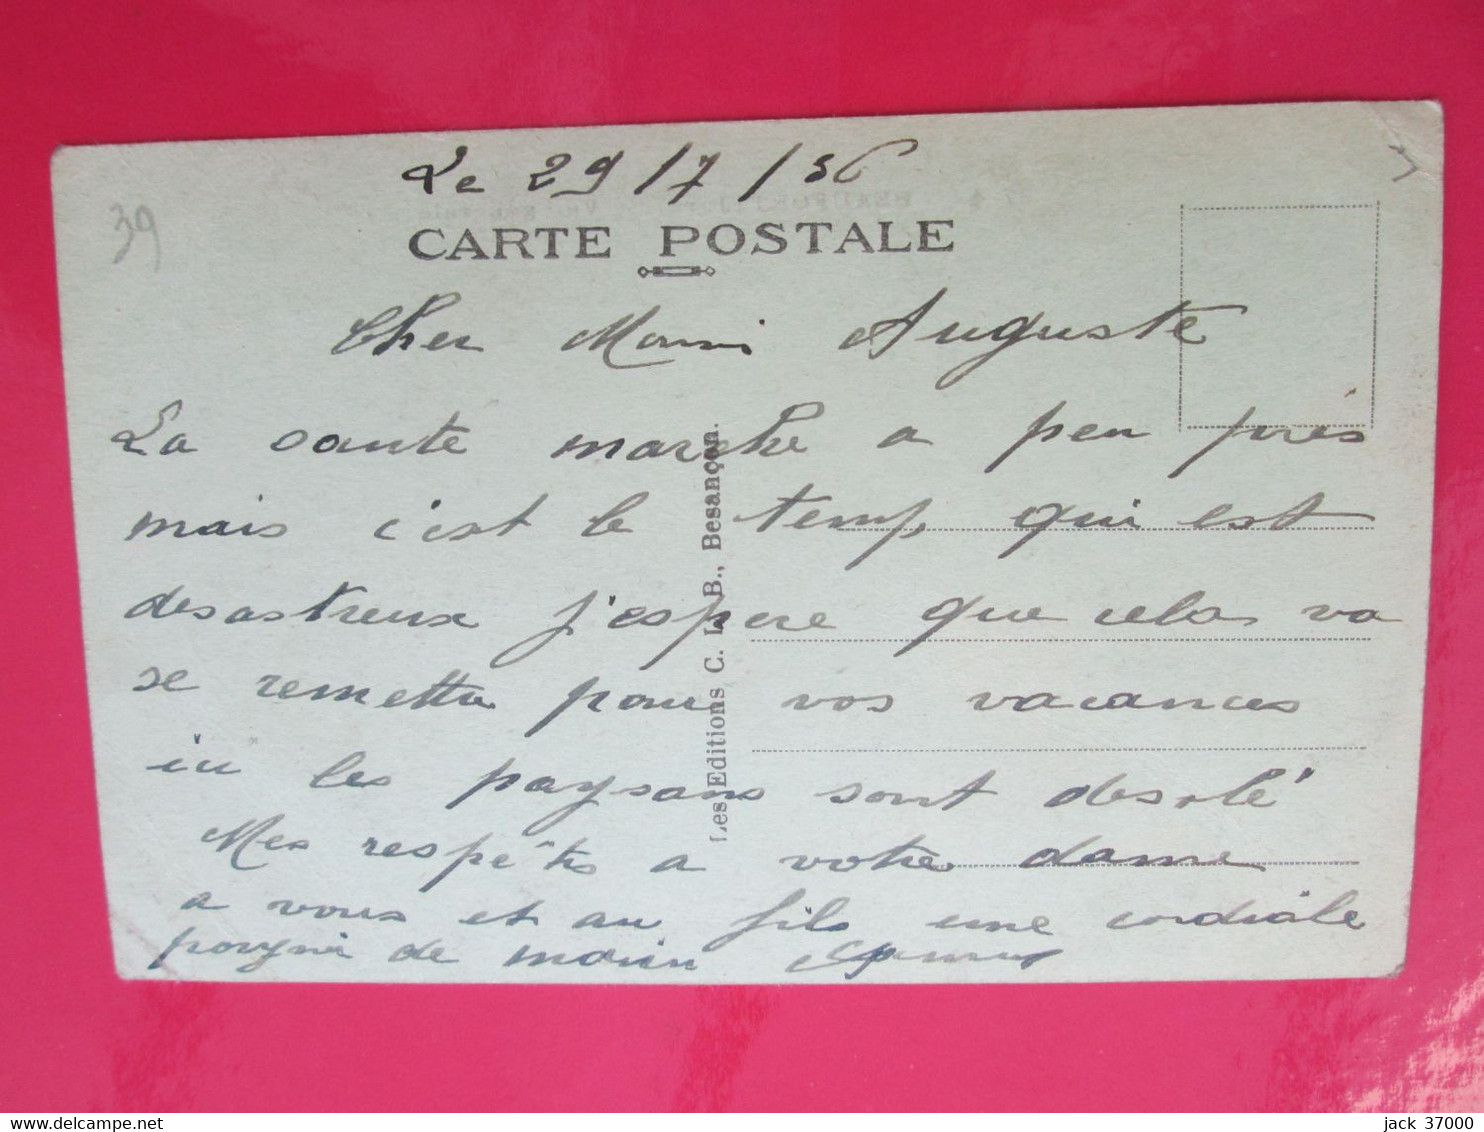 Le 29/7/36
39
CARTE POSTALE
Cher Auguste
La sante marche a peu près
mais c'est le temp qui est
desastreux j'espere que cela va
se remettre pour vos vacances
ici les paysans sont desolé
Mes respects a votre dame
a vous et au fils une cordiale
poigné de main
Les Editions C. L. B., Besançon.
www.delcampe.net
jack 37000